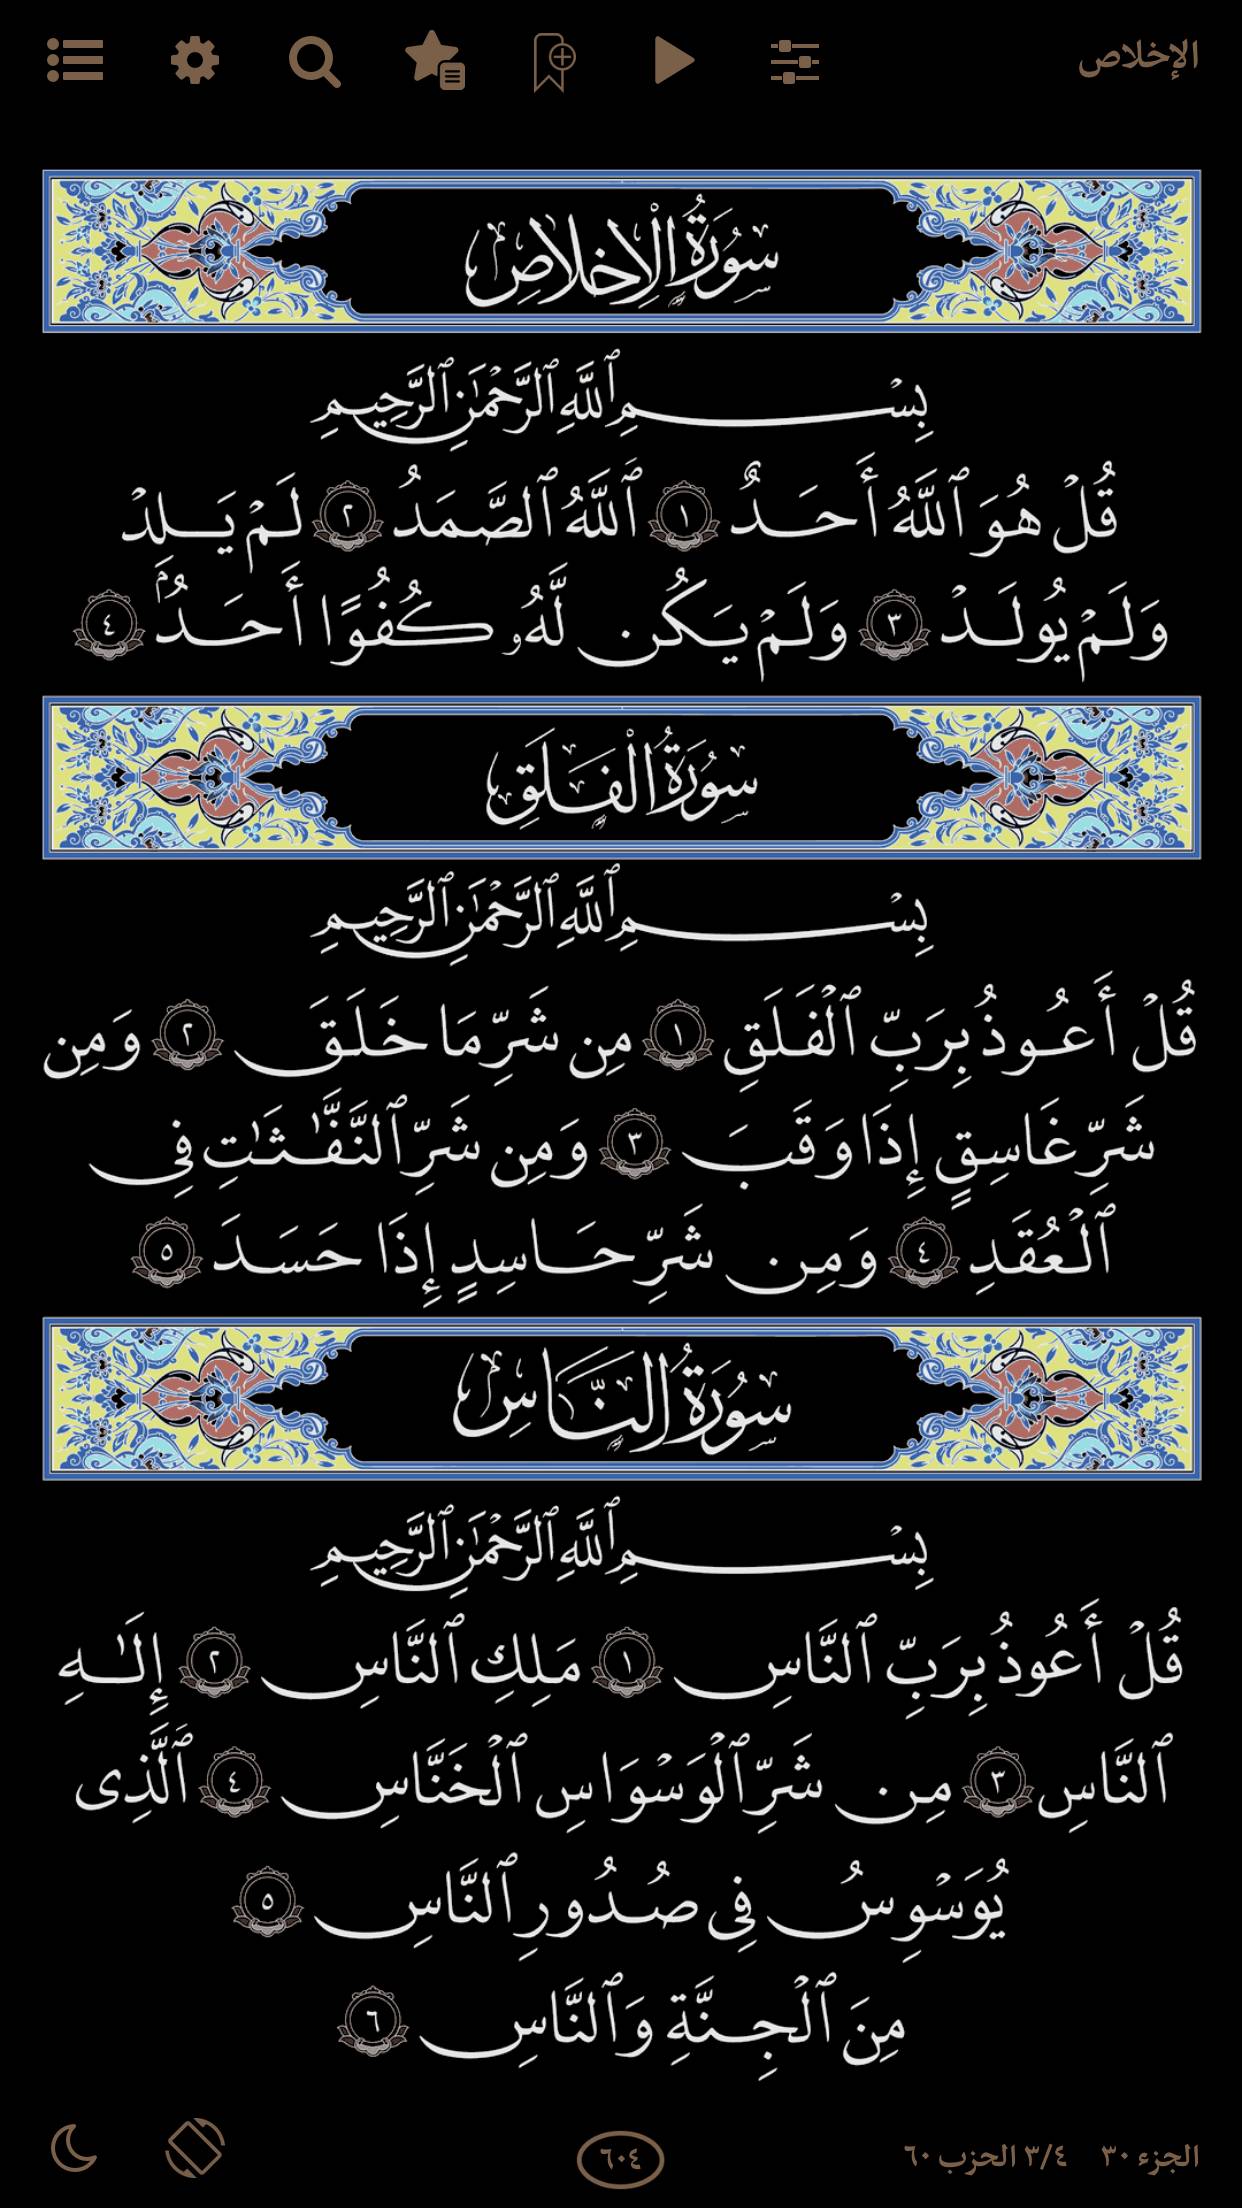 الإخلاص
سُورَةُ الْإِخْلَاصِ
بِسْمِ ٱللَّهِ ٱلرَّحْمَٰنِ ٱلرَّحِيمِ
قُلْ هُوَ ٱللَّهُ أَحَدٌ ١ ٱللَّهُ ٱلصَّمَدُ ٢ لَمْ يَلِدْ
وَلَمْ يُولَدْ ٣ وَلَمْ يَكُن لَّهُۥ كُفُوًا أَحَدُۢ ٤
سُورَةُ الْفَلَقِ
بِسْمِ ٱللَّهِ ٱلرَّحْمَٰنِ ٱلرَّحِيمِ
قُلْ أَعُوذُ بِرَبِّ ٱلْفَلَقِ ١ مِن شَرِّ مَا خَلَقَ ٢ وَمِن
شَرِّ غَاسِقٍ إِذَا وَقَبَ ٣ وَمِن شَرِّ ٱلنَّفَّٰثَٰتِ فِى
ٱلْعُقَدِ ٤ وَمِن شَرِّ حَاسِدٍ إِذَا حَسَدَ ٥
سُورَةُ النَّاسِ
بِسْمِ ٱللَّهِ ٱلرَّحْمَٰنِ ٱلرَّحِيمِ
قُلْ أَعُوذُ بِرَبِّ ٱلنَّاسِ ١ مَلِكِ ٱلنَّاسِ ٢ إِلَٰهِ
ٱلنَّاسِ ٣ مِن شَرِّ ٱلْوَسْوَاسِ ٱلْخَنَّاسِ ٤ ٱلَّذِى
يُوَسْوِسُ فِى صُدُورِ ٱلنَّاسِ ٥
مِنَ ٱلْجِنَّةِ وَٱلنَّاسِ ٦
الجزء ٣٠ ٣/٤ الحزب ٦٠ ٦٠٤